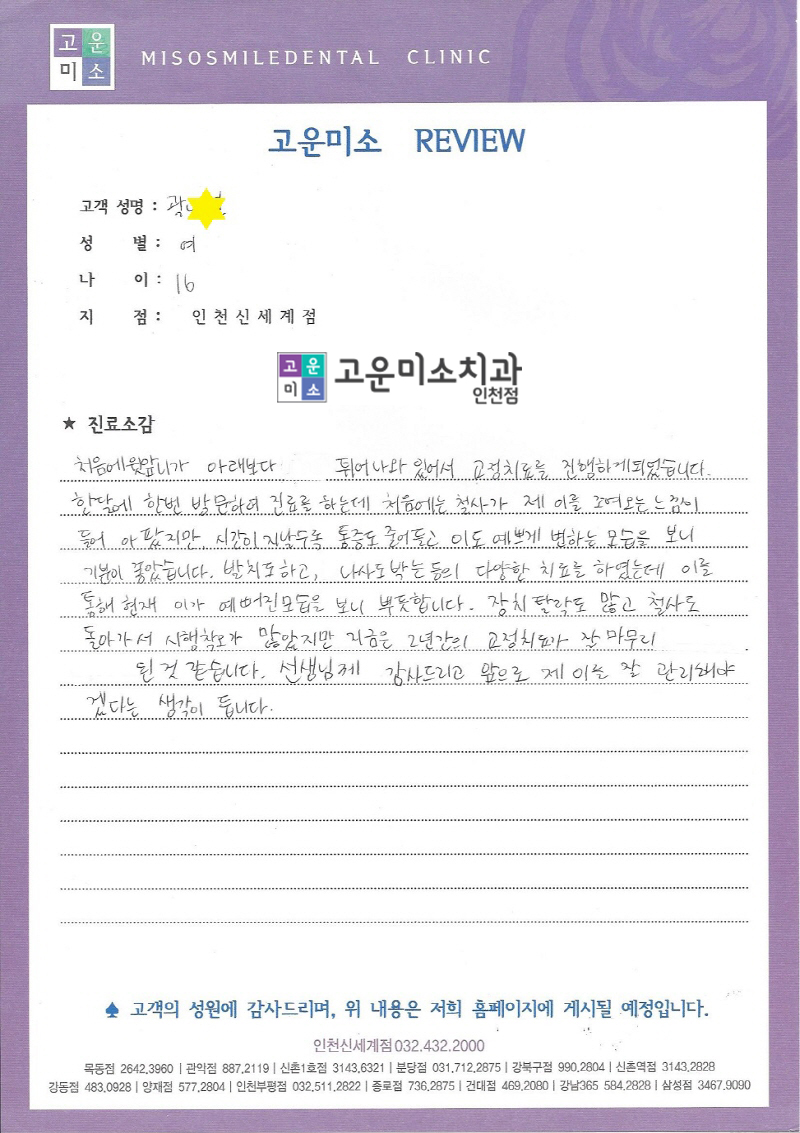 고운
미소
MISOSMILEDENTAL CLINIC
고운미소 REVIEW
고객 성명 : 곽
성 별 : 여
나 이 : 16
지 점 : 인천신세계점
고운
미소
고운미소치과
인천점
★ 진료소감
처음에 윗앞니가 아래보다 튀어나와 있어서 교정치료를 진행하게되었습니다.
한달에 한번 방문하여 진료를 하는데 처음에는 철사가 제 이를 조여오는 느낌이
들어 아팠지만, 시간이 지날수록 통증도 줄어들고 이도 예쁘게 변하는 모습을 보니
기분이 좋았습니다. 발치도하고, 나사도박는등의 다양한 치료를 하였는데 이를
통해 현재 이가 예뻐진모습을 보니 뿌듯합니다. 장치탈락도 많고 철사도
돌아가서 시행착오가 많았지만 지금은 2년간의 교정치료가 잘 마무리
된 것 같습니다. 선생님께 감사드리고 앞으로 제 이는 잘 관리해야
겠다는 생각이 듭니다.
♠ 고객의 성원에 감사드리며, 위 내용은 저희 홈페이지에 게시될 예정입니다.
인천신세계점 032.432.2000
목동점 2642,3960 | 관악점 887,2119 | 신촌1호점 3143,6321 | 분당점 031,712,2875 | 강북구점 990,2804 | 신촌역점 3143,2828
강동점 483,0928 | 양재점 577,2804 | 인천부평점 032,511,2822 | 종로점 736,2875 | 건대점 469,2080 | 강남365 584,2828 | 삼성점 3467,9090